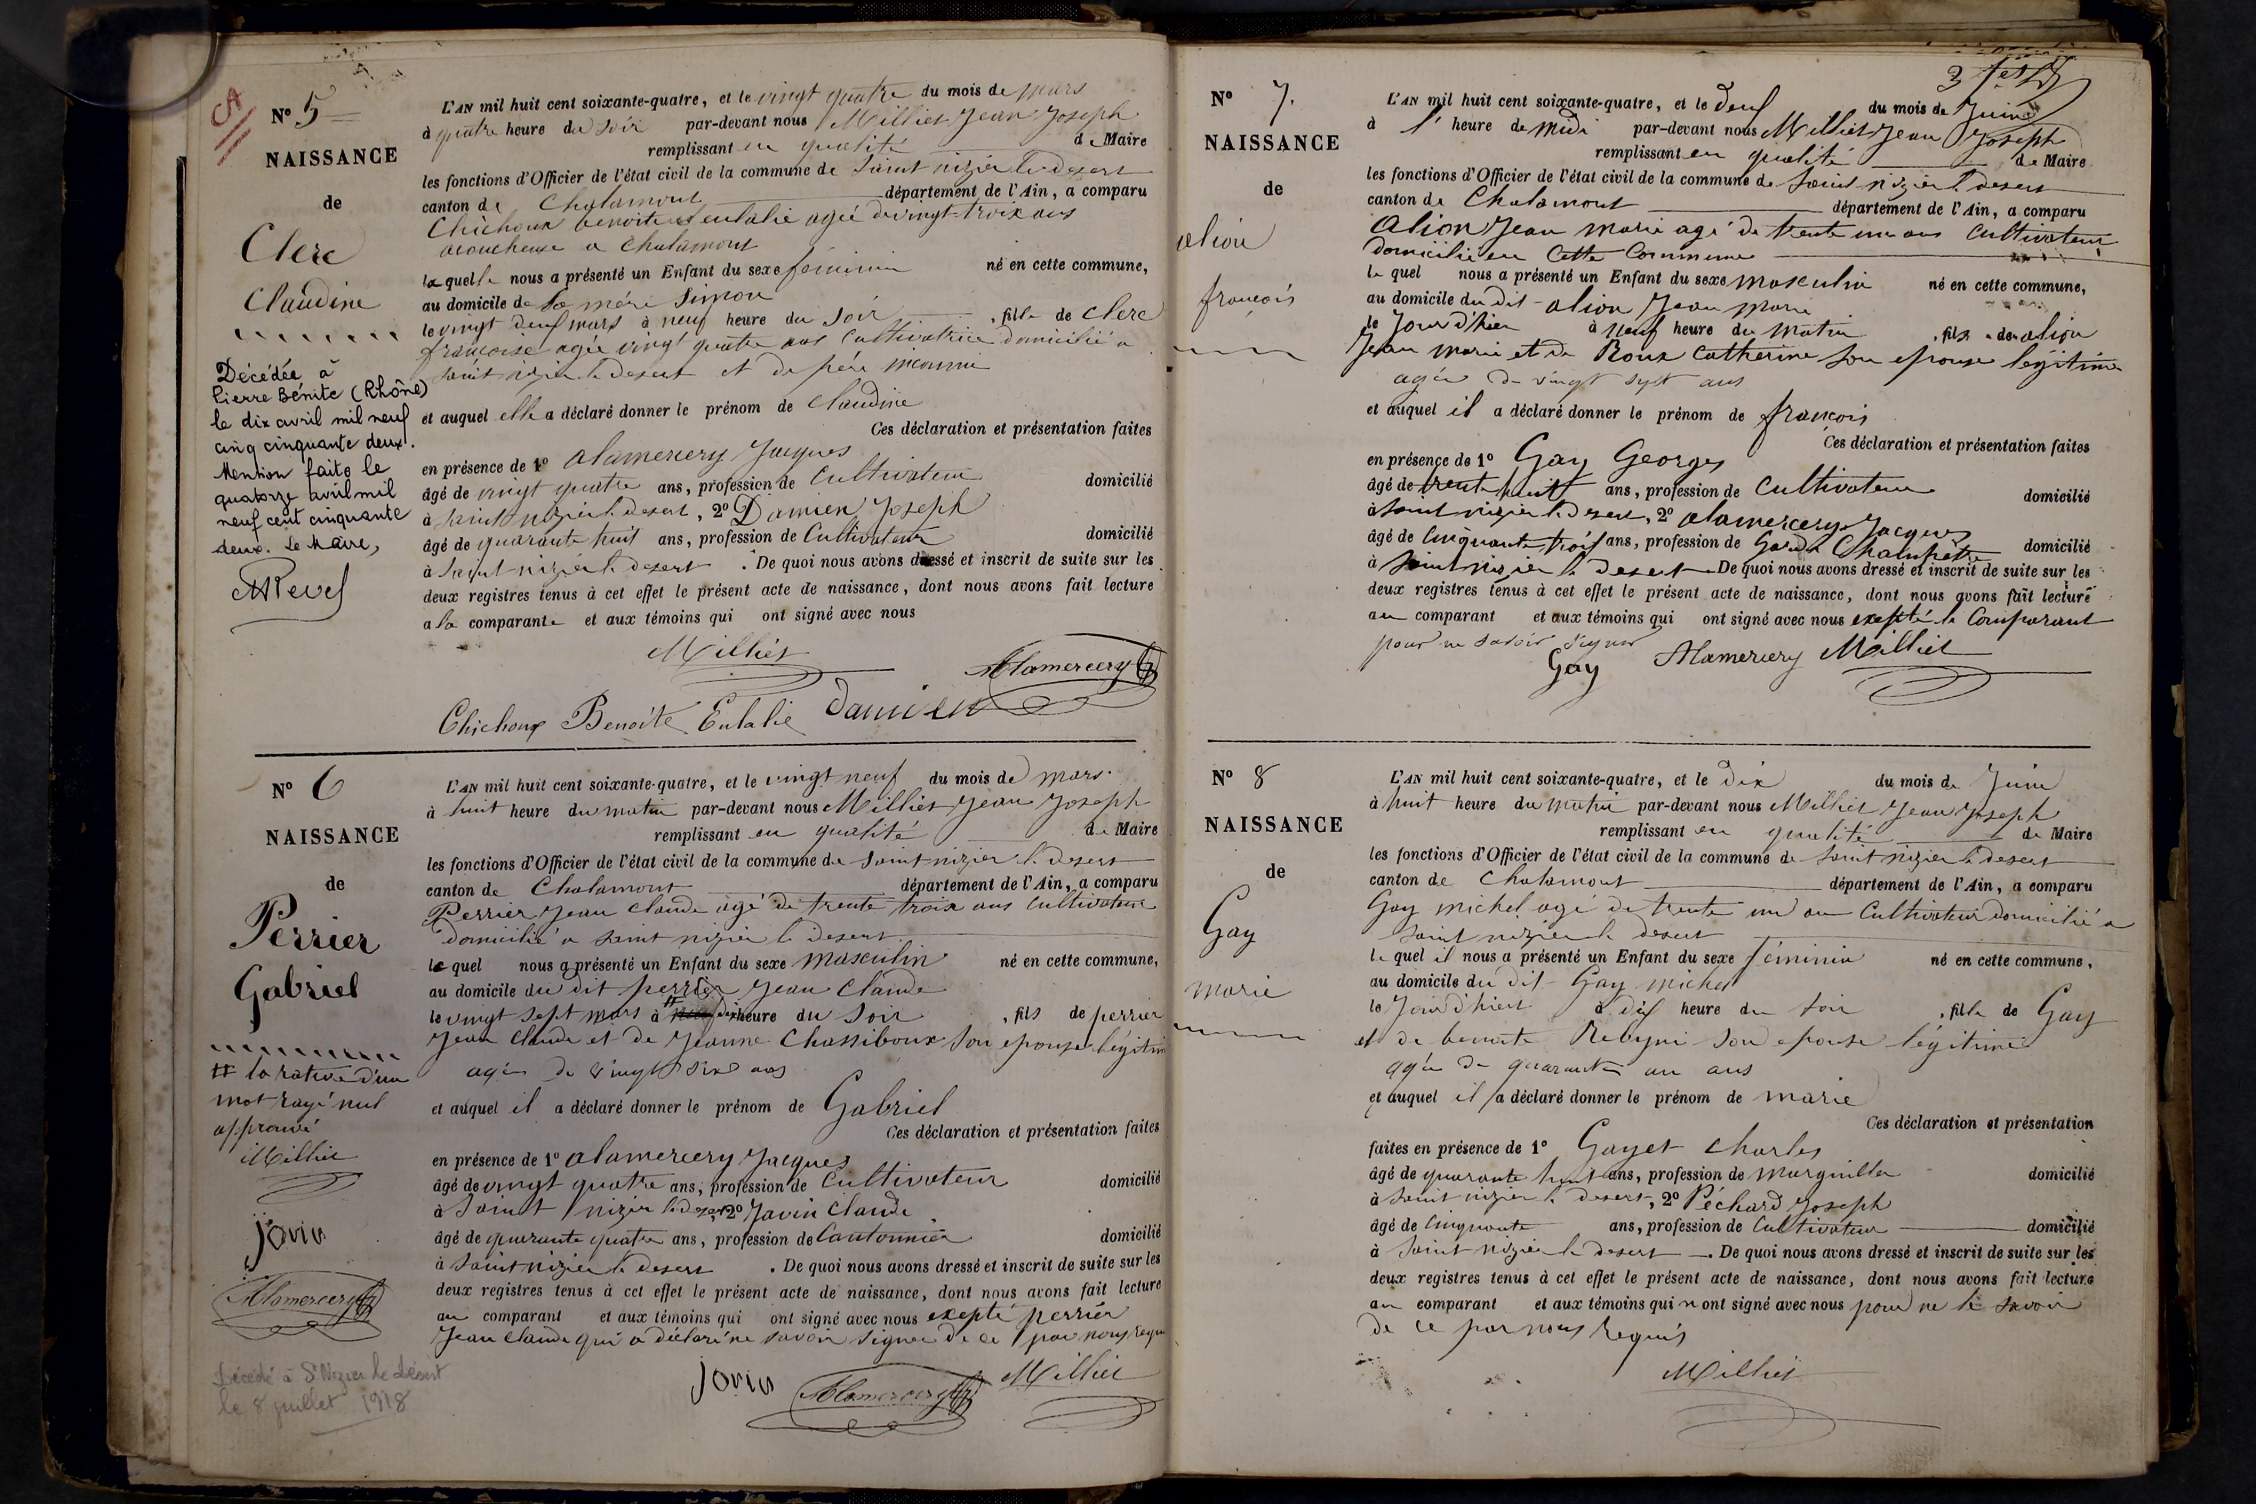 CA
N° 5
NAISSANCE
de
Clerc
Claudine
Décédée à
Pierre Bénite (Rhône)
le dix avril mil neuf
cinq cinquante deux.
Mention faite le
quatorze avril mil
neuf cent cinquante
deux. Le Maire,
L'AN mil huit cent soixante-quatre, et le vingt quatre du mois de mars
à quatre heure du soir par-devant nous Milliet Jean Joseph
remplissant en qualité de Maire
les fonctions d'Officier de l'état civil de la commune de Saint nizier le desert
canton de Chalamont département de l'Ain, a comparu
Chichoux benoite eulalie agée de vingt-troix ans
acoucheuse a Chalamont
la quelle nous a présenté un Enfant du sexe féminin né en cette commune,
au domicile de sa mére Simon
le vingt deux mars à neuf heure du soir , fille de Clerc
françoise agée vingt quatre ans Cultivatrice domicilié a
saint nizier le desert et de pére inconnu
et auquel elle a déclaré donner le prénom de Claudine
Ces déclaration et présentation faites
en présence de 1° alamercery Jacques
âgé de vingt quatre ans, profession de Cultivateur domicilié
à saint nizier le desert, 2° Damien Joseph
âgé de quarante huit ans, profession de Cultivateur domicilié
à saint-nizier le desert . De quoi nous avons dressé et inscrit de suite sur les
deux registres tenus à cet effet le présent acte de naissance, dont nous avons fait lecture
a la comparante et aux témoins qui ont signé avec nous
Milliet Alamercery
Chichoux Benoite Eulalie Damien
N° 6
NAISSANCE
de
Perrier
Gabriel
# la rature d'un
mot rayé nul
approuvé
Milliet
Jovin
Alamercery
Décédé à St Nizier le Désert
le 8 juillet 1918
L'AN mil huit cent soixante-quatre, et le vingt neuf du mois de mars
à huit heure du matin par-devant nous Milliet Jean Joseph
remplissant en qualité de Maire
les fonctions d'Officier de l'état civil de la commune de saint nizier le desert
canton de Chalamont département de l'Ain, a comparu
Perrier Jean Claude âgé de trente troix ans Cultivateur
domicilié a saint nizier le desert
le quel nous a présenté un Enfant du sexe masculin né en cette commune,
au domicile du dit perrier Jean Claude
le vingt sept mars à # dix heure du soir , fils de perrier
Jean Claude et de Jeanne Chassiboux son epouse légitim
agée de vingt six ans
et auquel il a déclaré donner le prénom de Gabriel
Ces déclaration et présentation faites
en présence de 1° alamercery Jacques
âgé de vingt quatre ans, profession de Cultivateur domicilié
à Saint nizier le desert, 2° Jovin Claude
âgé de quarante quatre ans, profession de Cantonnier domicilié
à saint nizier le desert . De quoi nous avons dressé et inscrit de suite sur les
deux registres tenus à cet effet le présent acte de naissance, dont nous avons fait lecture
au comparant et aux témoins qui ont signé avec nous exepté perrier
Jean Claude qui a déclaré ne savoir signer de ce par nous requ
Jovin Alamercery Milliet
N° 7.
NAISSANCE
de
alion
françois
L'AN mil huit cent soixante-quatre, et le deux du mois de Juin
à l' heure de midi par-devant nous Milliet Jean Joseph
remplissant en qualité de Maire
les fonctions d'Officier de l'état civil de la commune de saint nizier le desert
canton de Chalamont département de l'Ain, a comparu
Alion Jean marie agé de trente un ans Cultivateur
domicilié en Cette Commune
le quel nous a présenté un Enfant du sexe masculin né en cette commune,
au domicile du dit alion Jean marie
le Jour d'hier à neuf heure du matin , fils de alion
Jean marie et de Roux Catherine son epouse légitime
agée de vingt sept ans
et auquel il a déclaré donner le prénom de françois
Ces déclaration et présentation faites
en présence de 1° Gay Georges
âgé de trente huit ans, profession de Cultivateur domicilié
à saint nizier le desert, 2° alamercery Jacques
âgé de Cinquante trois ans, profession de Garde Champêtre domicilié
à saint nizier le desert De quoi nous avons dressé et inscrit de suite sur les
deux registres tenus à cet effet le présent acte de naissance, dont nous avons fait lecture
au comparant et aux témoins qui ont signé avec nous exepté le Comparant
pour ne savoir signer
Gay Alamercery Milliet
N° 8
NAISSANCE
de
Gay
marie
L'AN mil huit cent soixante-quatre, et le dix du mois de Juin
à huit heure du matin par-devant nous Milliet Jean Joseph
remplissant en qualité de Maire
les fonctions d'Officier de l'état civil de la commune de saint nizier le desert
canton de Chalamont département de l'Ain, a comparu
Gay michel agé de trente un an Cultivateur domicilié a
saint nizier le desert
le quel il nous a présenté un Enfant du sexe féminin né en cette commune,
au domicile du dit Gay michel
le Jour d'hier à dix heure du soir , fille de Gay
et de benoite Rebyni son epouse légitime
agée de quarante un ans
et auquel il a déclaré donner le prénom de marie
Ces déclaration et présentation
faites en présence de 1° Gayet Charles
âgé de quarante huit ans, profession de marguillier domicilié
à saint nizier le desert, 2° Péchard Joseph
âgé de Cinquante ans, profession de Cultivateur domicilié
à saint nizier le desert . De quoi nous avons dressé et inscrit de suite sur les
deux registres tenus à cet effet le présent acte de naissance, dont nous avons fait lecture
au comparant et aux témoins qui n ont signé avec nous pour ne le savoir
de ce par nous requis
Milliet